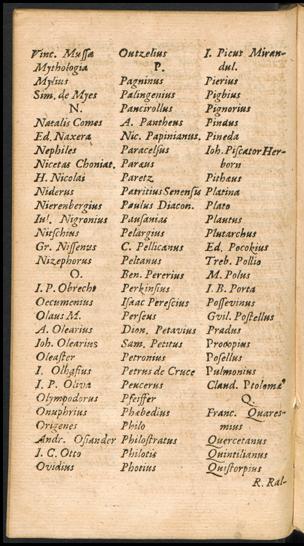 Vinc. Mussa
Mythologia
Mylius
Sim. de Myes
N.
Natalis Comes
Ed. Naxera
Nephiles
Nicetas Choniat.
H. Nicolai
Niderus
Nierenbergius
Iul. Nigronius
Nitschius
Gr. Nissenus
Nizephorus
O.
I. P. Obrecht
Oecumenius
Olaus M.
A. Olearius
Ioh. Olearius
Oleaster
I. Olhafius
I. P. Oliva
Olympodorus
Onuphrius
Origenes
Andr. Osiander
I. C. Otto
Ovidius
Outzelius
P.
Pagninus
Palingenius
Pancirollus
A. Pantheus
Nic. Papinianus.
Paracelsus
Paræus
Paretz
Patritius Senensis
Paulus Diacon.
Pausanias
Pelargius
C. Pellicanus
Peltanus
Ben. Pererius
Perkinsius
Isaac Perescius
Perseus
Dion. Petavius
Sam. Petitus
Petronius
Petrus de Cruce
Peucerus
Pfeiffer
Phœbedius
Philo
Philostratus
Philotis
Photius
I. Picus Miran-
dul.
Pierius
Pighius
Pignorius
Pindus
Pineda
Ioh. Piscator Her-
born
Pithæus
Platina
Plato
Plautus
Plutarchus
Ed. Pocokius
Treb. Pollio
M. Polus
I. B. Porta
Possevinus
Gvil. Postellus
Pradus
Procopius
Posellus
Pulmonius
Claud. Ptolemæ⁹
Q.
Franc. Quares-
mius
Quercetanus
Quintilianus
Quistorpius
R. Ral-